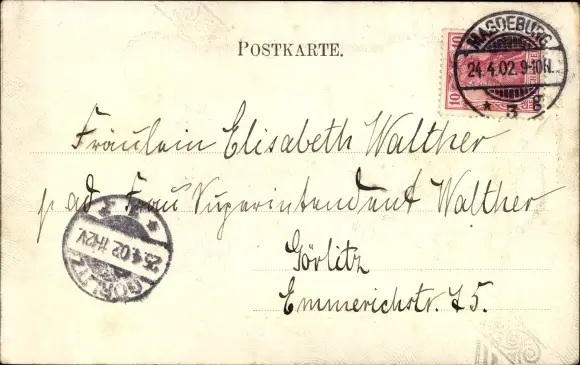 POSTKARTE.
MAGDEBURG
24.4.02.9-10N.
* 3 g
10 10
10
Fräulein Elisabeth Walther
p. ad. Frau Superintendent Walther
Görlitz
Emmerichstr. 75.
GÖRLITZ
25.4.02.11-12V.